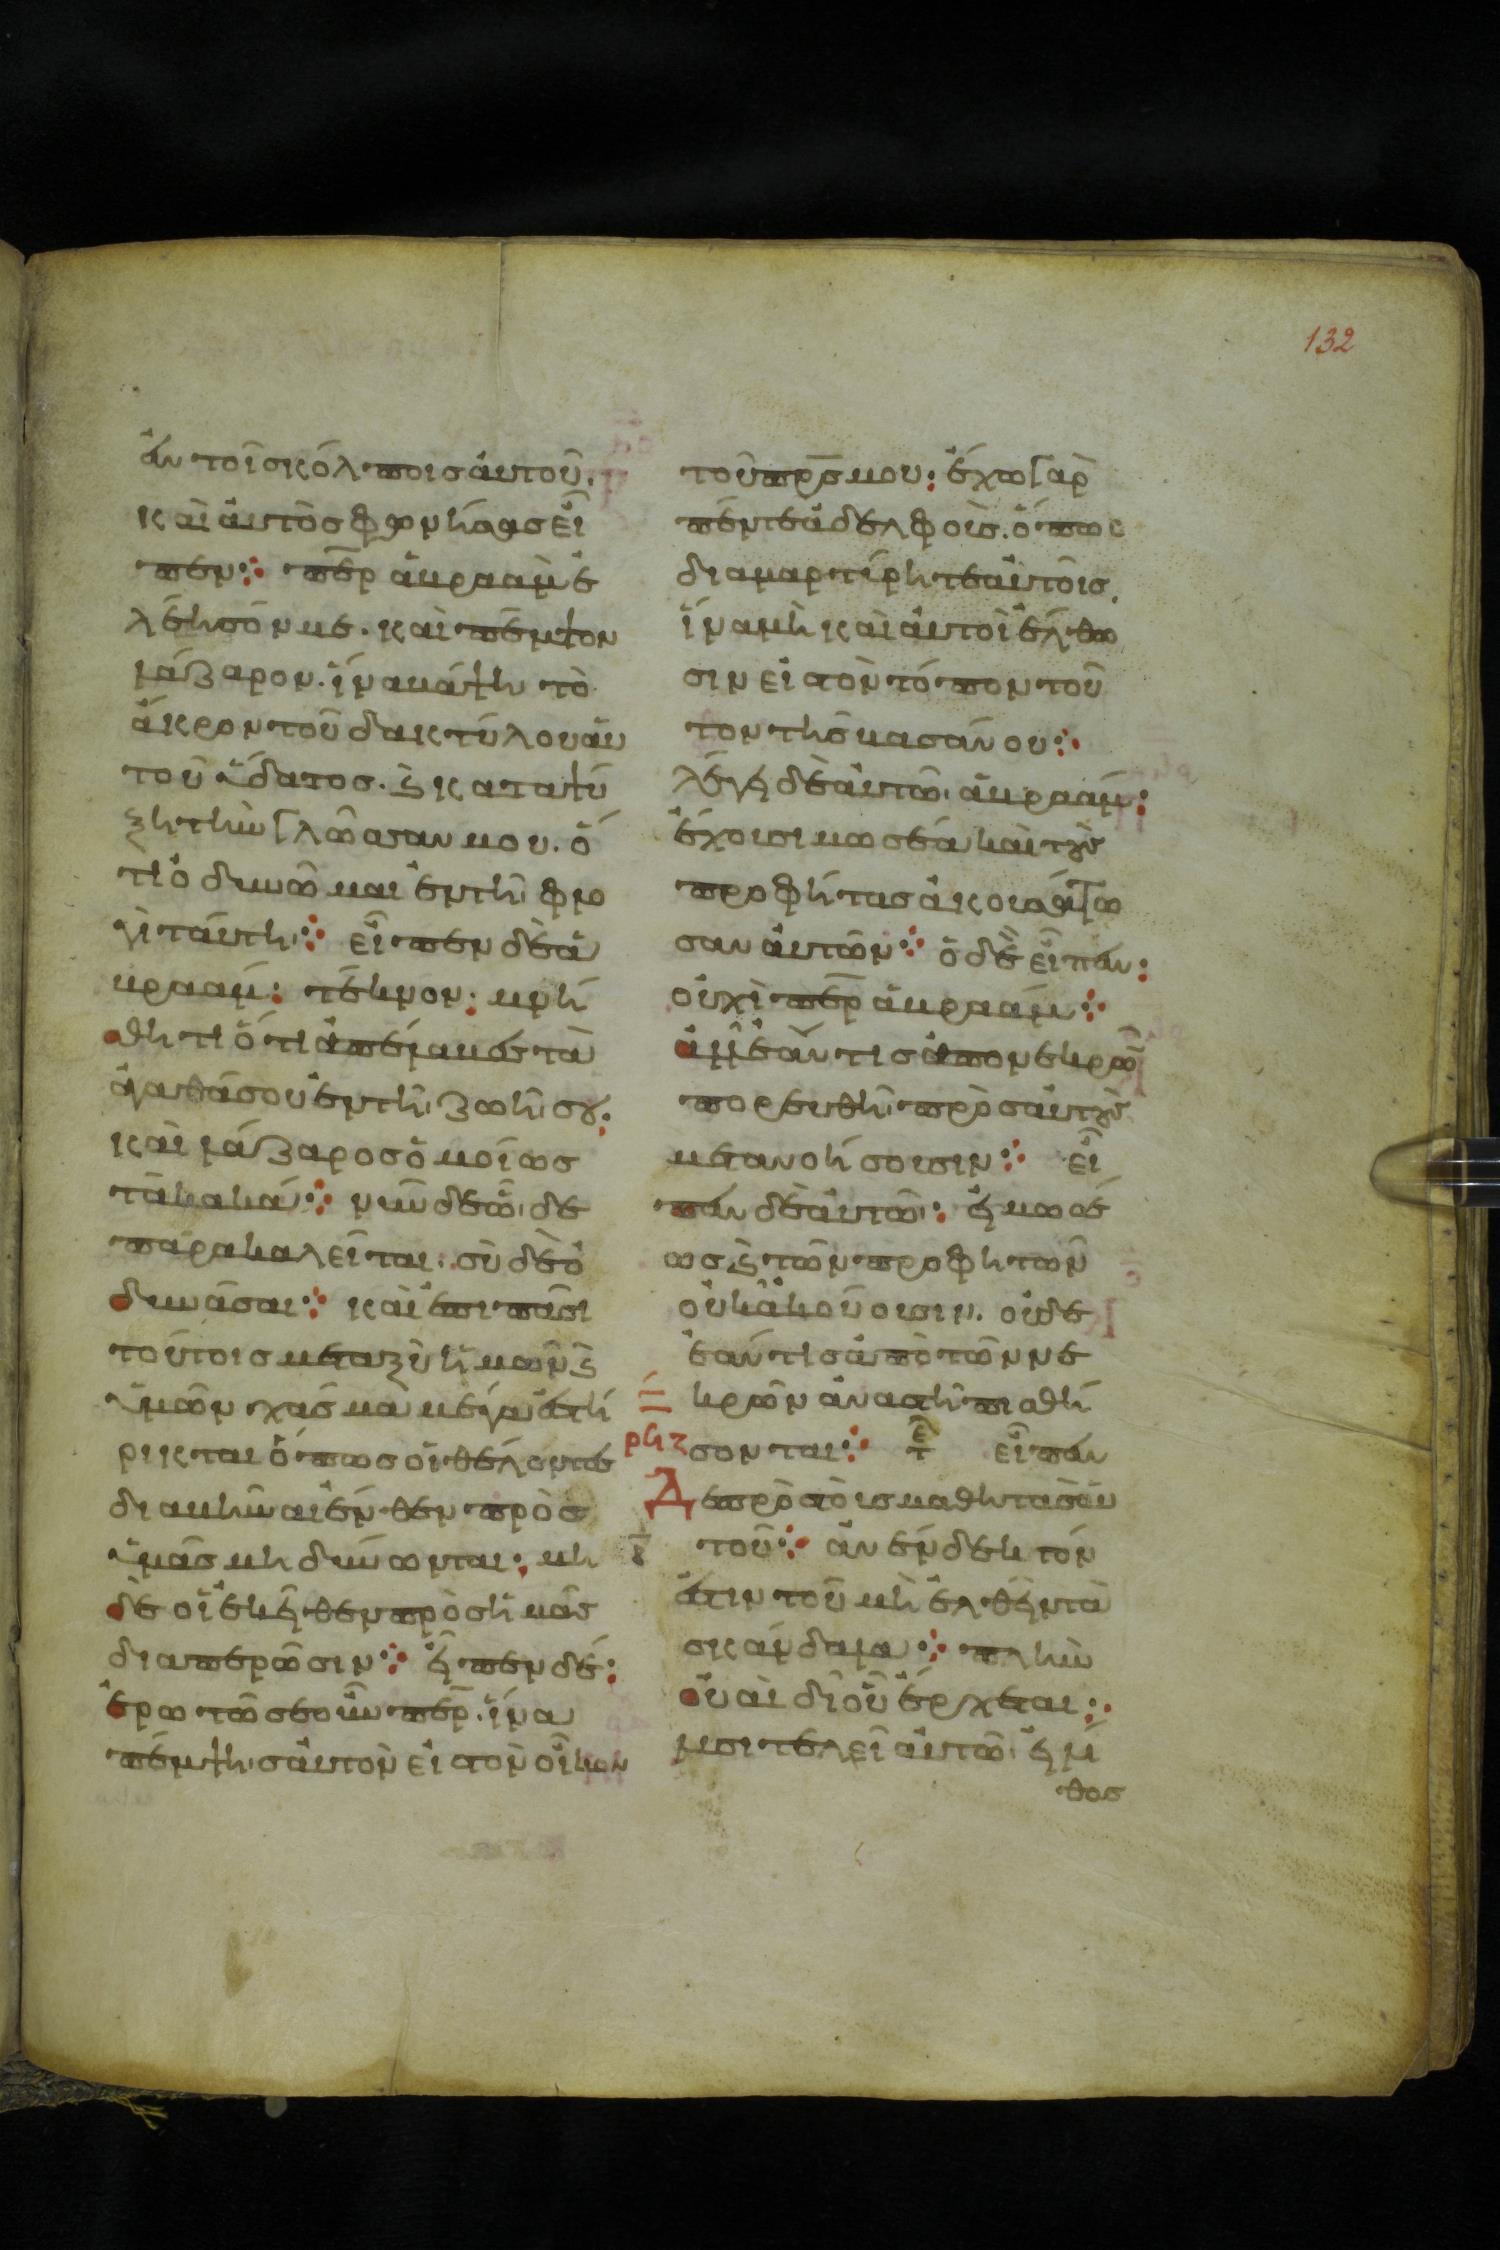 132
ἐν τοῖς κόλποις αὐτοῦ.
καὶ αὐτὸς φωνήσας εἶ
πεν· περ ἀβρααμ ἐ
λέησόν με. καὶ πέμψον
λάζαρον. ἵνα βάψη τὸ
ἄκρον τοῦ δακτύλου αὐ
τοῦ ὕδατος. καταψύ
ξη τὴν γλῶσσαν μου. ὅ
τι ὀδυνῶμαι ἐν τῆ φλο
γὶ ταύτη· εἶπεν δὲ ἀ
βραάμ· τέκνον· μνή
σθητι ὅτι ἀπέλαβες τὰ
ἀγαθά σου ἐν τῆ ζωῆ σου·
καὶ λάζαρος ὁμοίως
τὰ κακά· νῦν δὲ ὧδε
παρακαλεῖται· σὺ δὲ ὀ
δυνᾶσαι· καὶ ἐπι πᾶσι
τούτοις μεταξὺ ἡμῶν ϗ
ὑμῶν χάσμα μέγα ἐστή
ρικται ὅπως οἱ θέλοντες
διαβῆναι ἔνθεν πρὸς
ὑμᾶς μὴ δύνωνται· μη
δὲ οἱ ἐκεῖθεν πρὸς ἡμᾶς
διαπερῶσιν· εἶπεν δέ·
ἐρωτῶ σε οὖν περ. ἵνα
πέμψης αὐτὸν εἰς τὸν οἶκον
τοῦ πρς μου· ἔχω γὰρ
πέντε ἀδελφοὶς. ὅπως
διαμαρτύρητε αὐτοῖς.
ἵνα μὴ καὶ αὐτοὶ ἔλθω
σιν εἰς τὸν τόπον τοῦ
τον τῆς βασάνου·
λέγει δὲ αὐτῶ ἀβραάμ·
ἔχουσι μωσέα καὶ τοὺς
προφήτας ἀκουσάτω
σαν αὐτῶν· ὁ δὲ εἶπεν·
οὐχὶ περ ἀβραάμ·
ἀλλ ἐάν τις ἀπο νεκρῶν
πορευθῆ πρὸς αὐτοὺς
μετανοήσουσιν· εἶ
πεν δὲ αὐτῶ· εἰ μωσέ
ως ϗ τῶν προφητῶν
οὐκ ἀκούουσιν. οὐδε
ἐάν τις ἀπὸ τῶν νε
κρῶν ἀναστῆ πισθή
ρηζ σονται· τε εἶπεν
Δὲ πρὸς τοὺς μαθητὰς αὐ
τοῦ· ἀνένδεκτόν
ἐστιν τοῦ μὴ ἐλθεῖν τὰ
σκάνδαλα· πλὴν
οὐαὶ δι οὗ ἔρχεται·
λυσιτελεῖ αὐτῶ εἰ λί
θος